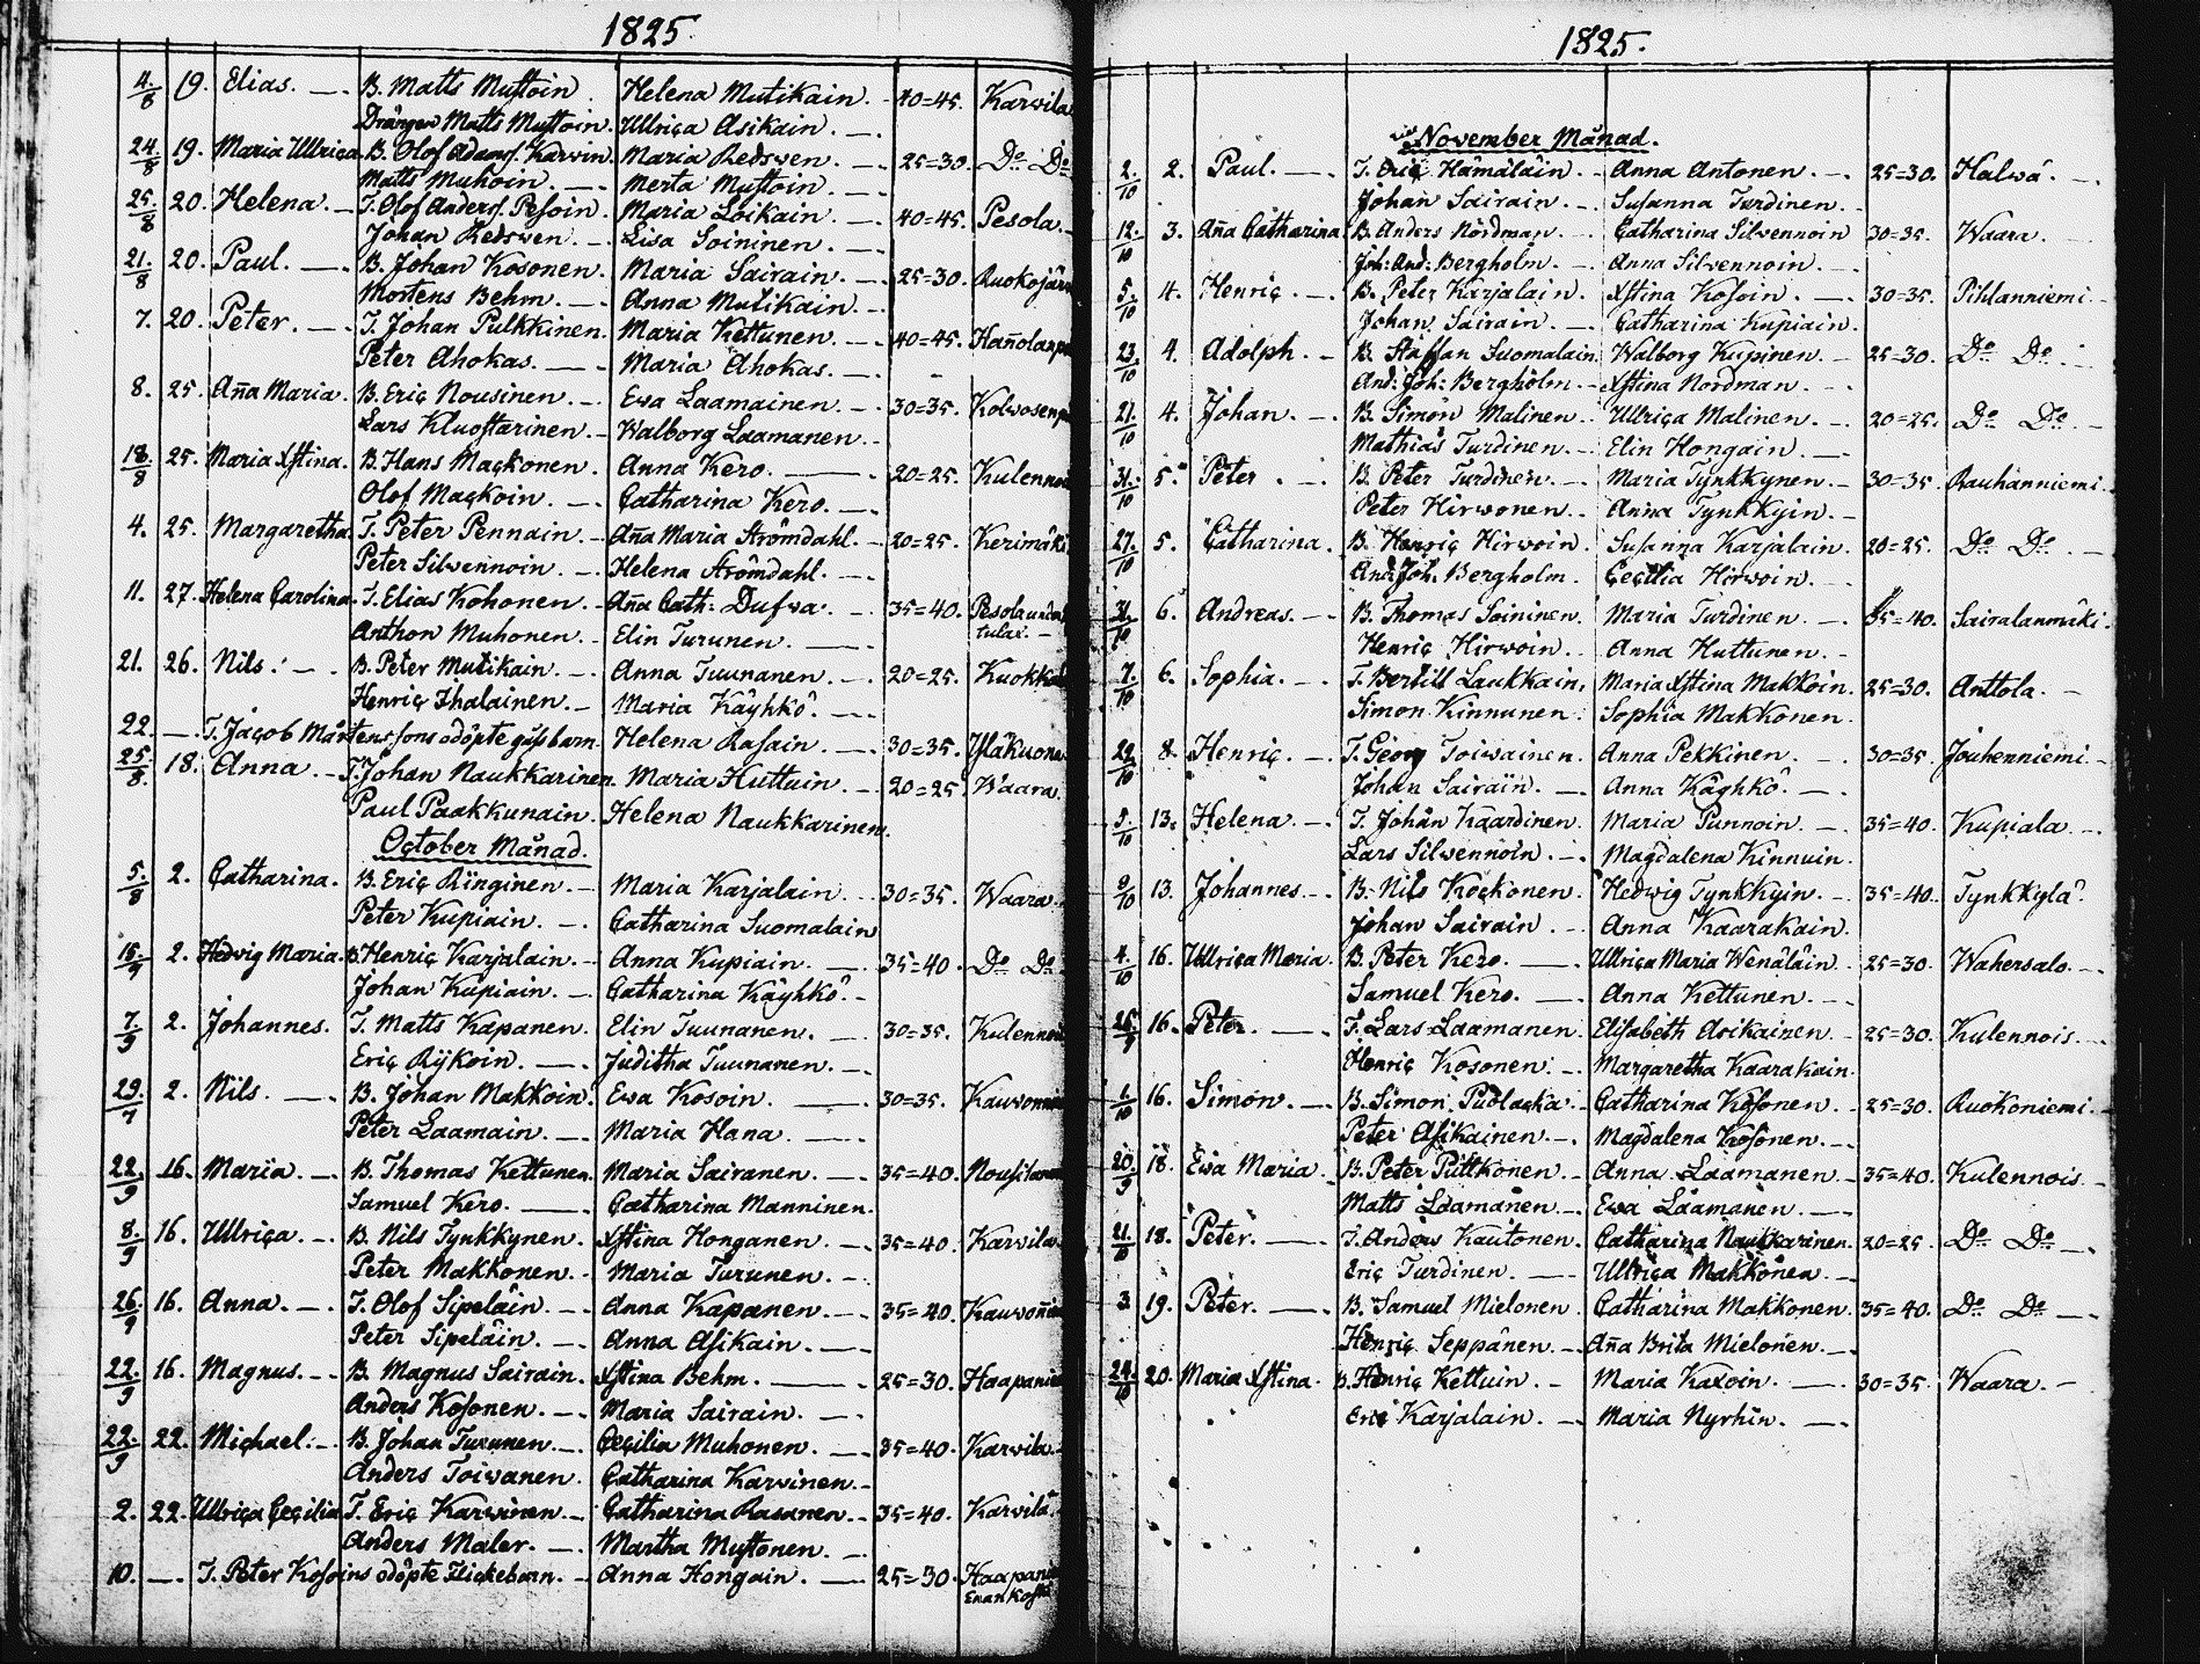 1825.
4./8 19. Elias. B. Matts Mustoin. Helena Mutikain. 40=45. Karvila
Drängen Matts Mustoin. Ullrica Asikain.
24./8 19. Maria Ullrica. B. Olof Adamsf. Karvin. Maria Redswen. 25=30. Do Do
Matts Muhoin. Merta Mustoin.
25./8 20. Helena. T. Olof Andersf. Pesoin. Maria Loikain. 40=45. Pesola.
Johan Redswen. Lisa Soininen.
21./8 20. Paul. B. Johan Kosonen. Maria Sairain. 25=30.
Mortens Behm. Anna Mutikain.
7. 20. Peter. T. Johan Pulkkinen. Maria Kettunen. 40=45.
Peter Ahokas. Maria Ahokas.
8. 25. Aña Maria. B. Eric Nousinen. Ewa Laamainen. 30=35.
Lars Kluostarinen. Walborg Laamanen.
18./8 25. Maria Xstina. B. Hans Mackonen. Anna Kero. 20=25.
Olof Mackoin. Catharina Kero.
4. 25. Margaretha. T. Peter Pennain. Aña Maria Strömdahl. 20=25. Kerimäki
Peter Silvennoin. Helena Strömdahl.
11. 27. Helena Carolina. T. Elias Kohonen. Aña Cath: Dufva. 35=40.
Anthon Muhonen. Elin Turunen. tulax.
21. 26. Nils. B. Peter Mutikain. Anna Tuunanen. 20=25.
Henric Ihalainen. Maria Käyhkö.
22. T. Jacob Mårtenssons odöpte gåsbarn. Helena Rasain. 30=35.
25./8. 18. Anna. T. Johan Naukkarinen. Maria Huttuin. 20=25. Waara.
Paul Paakkunain. Helena Naukkarinen.
October Månad.
5./8 2. Catharina. B. Eric Ringinen. Maria Karjalain. 30=35. Waara.
Peter Kupiain. Catharina Suomalain
15./9 2. Hedvig Maria. B. Henric Karjalain. Anna Kupiain. 35=40. Do Do
Johan Kupiain. Catharina Käyhkö.
7./9 2. Johannes. T. Matts Kapanen. Elin Tuunanen. 30=35.
Eric Rÿkoin. Juditha Tuunanen.
29./7 2. Nils. B. Johan Makkoin. Ewa Kosoin. 30=35.
Peter Laamain. Maria Hana.
22./9 16. Maria. B. Thomas Kettunen. Maria Sairanen. 35=40.
Samuel Kero. Catharina Manninen.
8./9 16. Ullrica. B. Nils Tynkkynen. Xstina Honganen. 35=40. Karvila.
Peter Makkonen. Maria Turunen.
26./9 16. Anna. T. Olof Sipeläin. Anna Kapanen. 35=40.
Peter Sipeläin. Anna Asikain.
22./9 16. Magnus. B. Magnus Sairain. Xstina Behm. 25=30.
Anders Kosonen. Maria Sairain.
22./9 22. Michael. B. Johan Turunen. Cecilia Muhonen. 35=40. Karvila.
Anders Toivanen. Catharina Karvinen.
2. 22. Ullrica Cecilia T. Eric Karvinen. Catharina Rasanen. 35=40. Karvila.
Anders Maler. Martha Mustonen.
10. T. Peter Kosoins odöpte Flickebarn. Anna Hongain. 25=30.
1825.
November Månad.
2./10 2. Paul. T. Eric Hämäläin. Anna Antonen. 25=30. Halwa.
Johan Sairain. Susanna Turdinen.
12./10 3. Aña Catharina. B. Anders Nordman. Catharina Silvennoin 30=35. Waara.
Joh: And: Bergholm. Anna Silvennoin.
5./10 4. Henric. B. Peter Karjalain. Xstina Kosoin. 30=35. Pihlanniemi.
Johan Sairain. Catharina Kupiain.
23./10 4. Adolph. B. Staffan Suomalain. Walborg Kupinen. 25=30. Do Do
And: Joh: Bergholm. Xstina Nordman.
21./10 4. Johan. B. Simon Malinen. Ullrica Malinen. 20=25. Do Do
Mathias Turdinen. Elin Hongain.
31./10 5. Peter. B. Peter Turdinen. Maria Tynkkynen. 30=35. Rauhanniemi.
Peter Hirwonen. Anna Tynkkyin.
27./10 5. Catharina. B. Henric Hirwoin. Susanna Karjalain. 20=25. Do Do
And: Joh: Bergholm. Cecilia Hirwoin.
31./10 6. Andreas. B. Thomas Soininen. Maria Turdinen. 35=40. Sairalanmäki.
Henric Hirwoin. Anna Huttunen.
7./10 6. Sophia. T. Bertill Laukkain. Maria Xstina Makkoin. 25=30. Anttola.
Simon Kinnunen. Sophia Makkonen.
29./10 8. Henric. T. Georg Toiwainen. Anna Pekkinen. 30=35. Jouhenniemi.
Johan Sairain. Anna Käyhkö.
5./10 13. Helena. T. Johan Kaardinen. Maria Punnoin. 35=40. Kupiala.
Lars Silvennoin. Magdalena Kinnuin.
9/10 13. Johannes. B. Nils Kockonen. Hedwig Tynkkyin. 35=40. Tynkkylä.
Johan Sairain. Anna Kaarakain.
4./10 16. Ullrica Maria. B. Peter Kero. Ullrica Maria Wenäläin. 25=30. Wahersalo.
Samuel Kero. Anna Kettunen.
25./9 16. Peter. T. Lars Laamanen. Elisabeth Asikainen. 25=30. Kulennois.
Henric Kosonen. Margaretha Kaarakain.
1./10 16. Simon. B. Simon Puolacka. Catharina Kosonen. 25=30. Ruokoniemi.
Peter Asikainen. Magdalena Kosonen.
20./9 18. Ewa Maria. B. Peter Puttkonen. Anna Laamanen. 35=40. Kulennois.
Matts Laamanen. Ewa Laamanen.
21./10 18. Peter. T. Anders Kautonen. Catharina Naukkarinen. 20=25. Do Do
Eric Turdinen. Ullrica Makkonen.
3. 19. Peter. B. Samuel Mielonen. Catharina Makkonen. 35=40. Do Do
Henric Seppänen. Aña Brita Mielonen.
24./10 20. Maria Xstina. B. Henric Kettuin. Maria Kaxoin. 30=35. Waara.
Eric Karjalain. Maria Nyrhin.